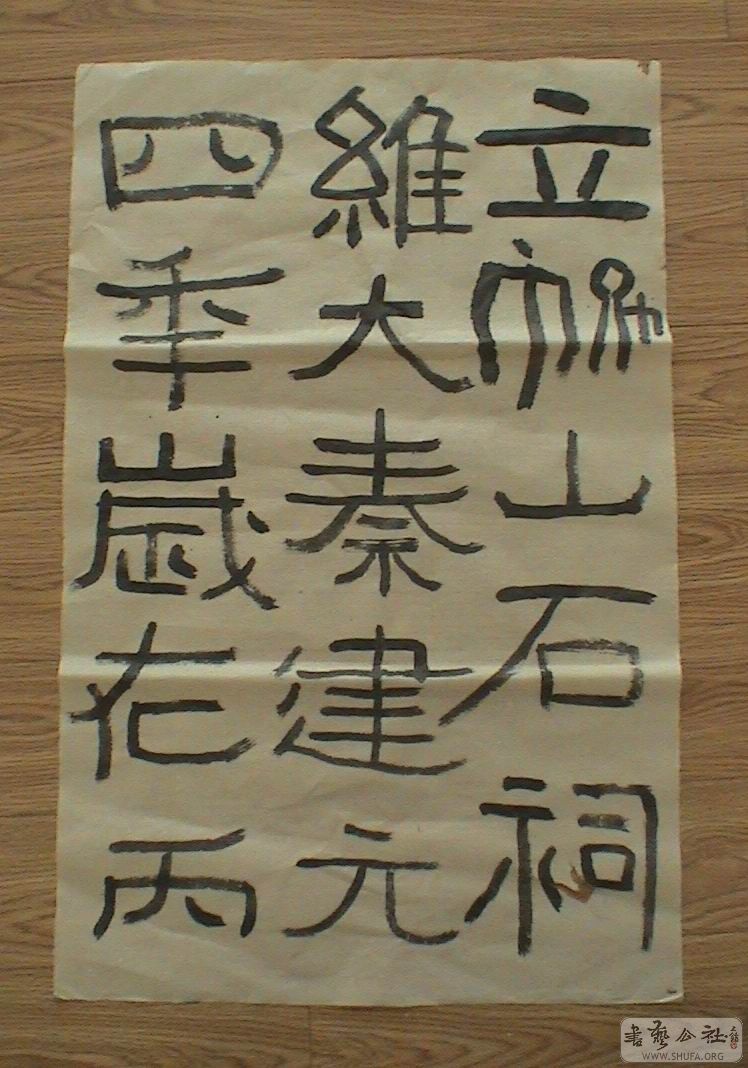 立界山石祠
維大秦建元
四年歲在丙
書藝公社
WWW.SHUFA.ORG